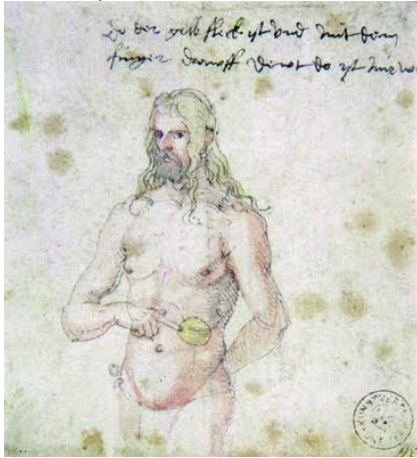 Do der gelb fleck yst vnd mit dem
finger drawff dewt do yst mir w
KUNSTVE